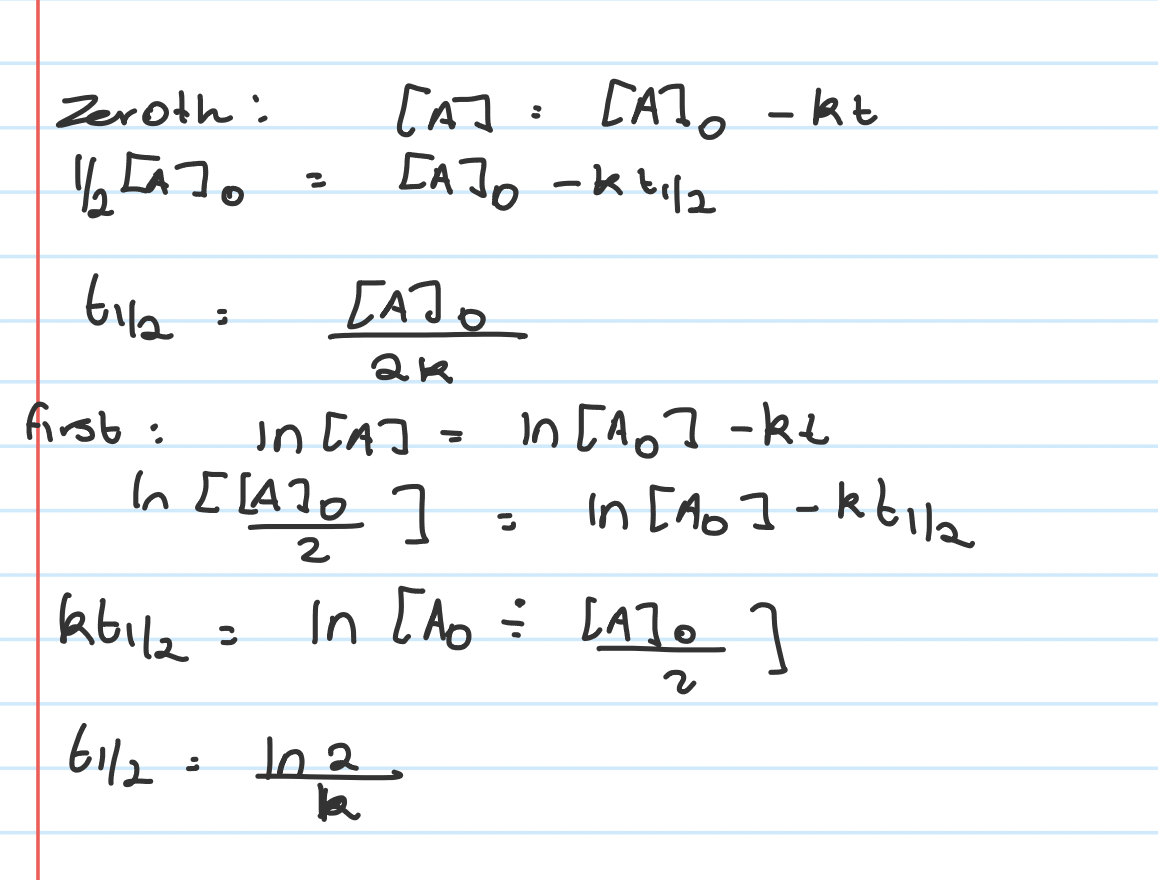 Zeroth: [A] = [A]₀ - kt
1/2 [A]₀ = [A]₀ - kt₁/₂
t₁/₂ = [A]₀ / 2k
first: ln [A] = ln [A₀] - kt
ln [[A]₀ / 2] = ln [A₀] - kt₁/₂
kt₁/₂ = ln [A₀ ÷ [A]₀ / 2]
t₁/₂ = ln 2 / k